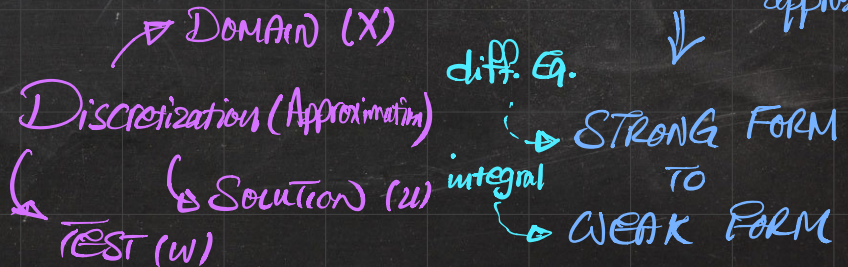 DOMAIN (X)
Discretization (Approximation)
SOLUTION (U)
TEST (W)
diff. Eq.
STRONG FORM
integral
TO
WEAK FORM